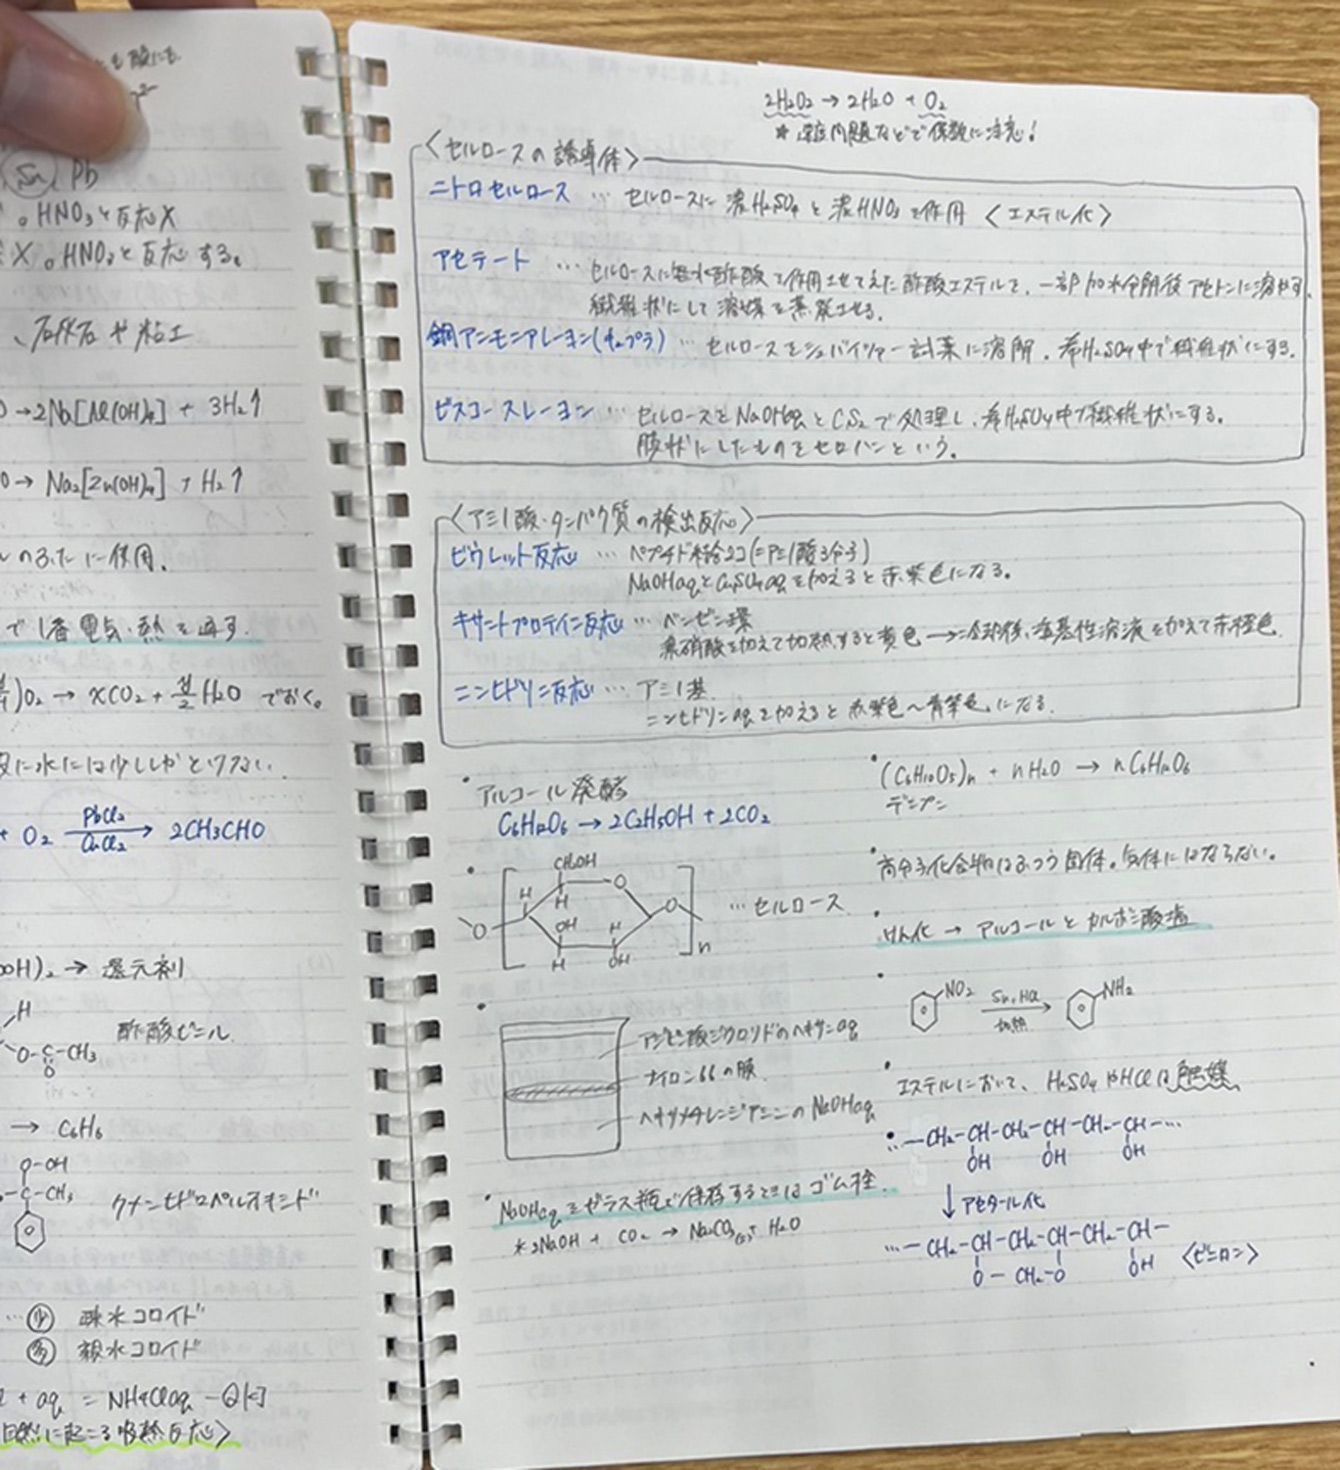 も酸にも
2-
Sn Pb
。HNO3と反応X
X。HNO3と反応する。
石灰石や粘土
→2Na[Al(OH)4] + 3H2↑
→ Na2[Zn(OH)4] + H2↑
のふたに使用.
で1番電気・熱を通す.
)O2 → xCO2 + y/2 H2O でおく。
に水には少ししかとけない.
+ O2 PdCl2 CuCl2 → 2CH3CHO
OH)2 → 還元剤
H
O-C-CH3
O
酢酸ビニル
→ C6H6
O-OH
-C-CH3
クメンヒドロペルオキシド
…㊛ 疎水コロイド
㊛ 親水コロイド
+ aq = NH4Claq - Q[kJ]
自然に起こる吸熱反応〉
2H2O2 → 2H2O + O2
* 難問題などで係数に注意!
〈セルロースの誘導体〉
ニトロセルロース … セルロースに濃H2SO4と濃HNO3を作用 〈エステル化〉
アセテート … セルロースに無水酢酸を作用させてえた酢酸エステルを、一部加水分解後アセトンに溶かす.
繊維状にして溶媒を蒸発させる.
銅アンモニアレーヨン(キュプラ) … セルロースをシュバイツァー試薬に溶解、希H2SO4中で繊維状にする.
ビスコースレーヨン … セルロースをNaOHaqとCS2で処理し、希H2SO4中で繊維状にする.
膜状にしたものをセロハンという。
〈アミノ酸・タンパク質の検出反応〉
ビウレット反応 … ペプチド結合2コ(=アミノ酸3分子)
NaOHaqとCuSO4aqを加えると赤紫色になる。
キサントプロテイン反応 … ベンゼン環
濃硝酸を加えて加熱すると黄色 → 冷却後、塩基性溶液を加えて赤橙色.
ニンヒドリン反応 … アミノ基.
ニンヒドリンaqを加えると赤紫色~青紫色になる.
・アルコール発酵
C6H12O6 → 2C2H5OH + 2CO2
・
CH2OH
O
H
H
OH
H
H
OH
O
O
n
… セルロース
・
アジピン酸ジクロリドのヘキサンaq
ナイロン66の膜
ヘキサメチレンジアミンのNaOHaq
・NaOHaqをガラス瓶で保存するときはゴム栓.
*2NaOH + CO2 → Na2CO3(s)+ H2O
・(C6H10O5)n + nH2O → nC6H12O6
デンプン
・高分子化合物はふつう固体。気体にはならない。
・けん化 → アルコールとカルボン酸塩
・
NO2 Sn, HCl 加熱 → NH2
・エステルにおいて、H2SO4やHClは触媒
・…-CH2-CH-CH2-CH-CH2-CH-…
OH OH OH
↓アセタール化
…-CH2-CH-CH2-CH-CH2-CH-
O - CH2-O OH 〈ビニロン〉